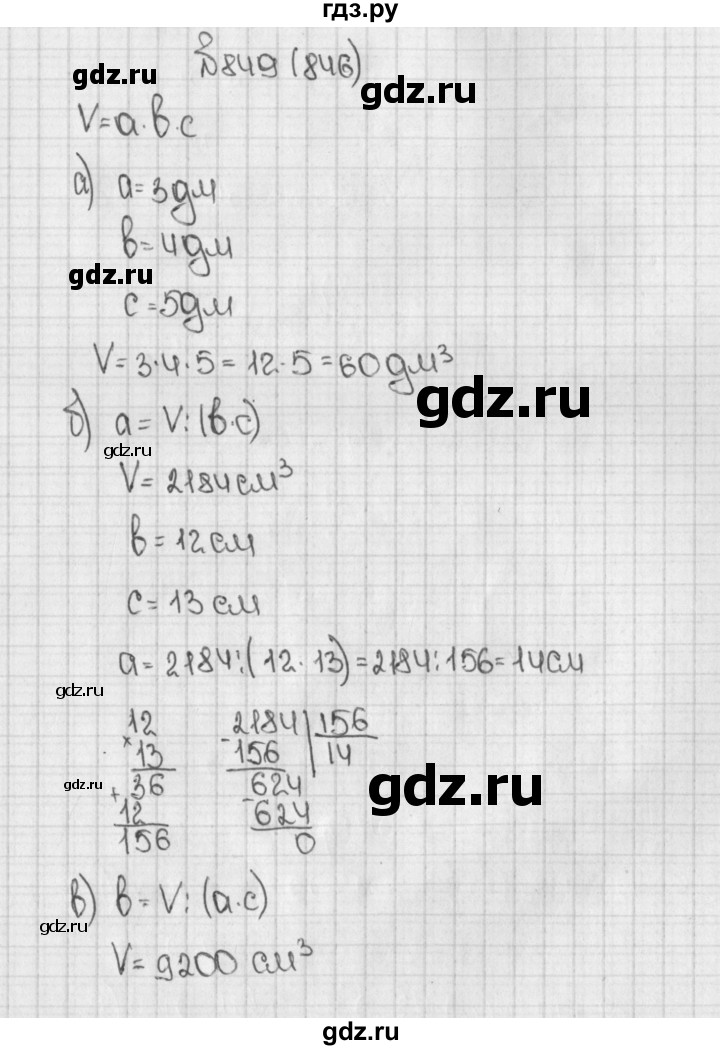 гдз.ру
№849 (846)
gdz.ru
gdz.ru
V=a·b·c
а) a=3дм
b=4дм
gdz.ru
c=5дм
V=3·4·5=12·5=60дм³
gdz.ru
б) a=V:(b·c)
gdz.ru
V=2184см³
b=12см
c=13см
a=2184:(12·13)=2184:156=14см
gdz.ru
12 2184 156
×13 -156 14
gdz.ru
+36 624
gdz.ru
12 -624
156 0
в) b=V:(a·c)
gdz.ru
V=9200 см³
gdz.ru